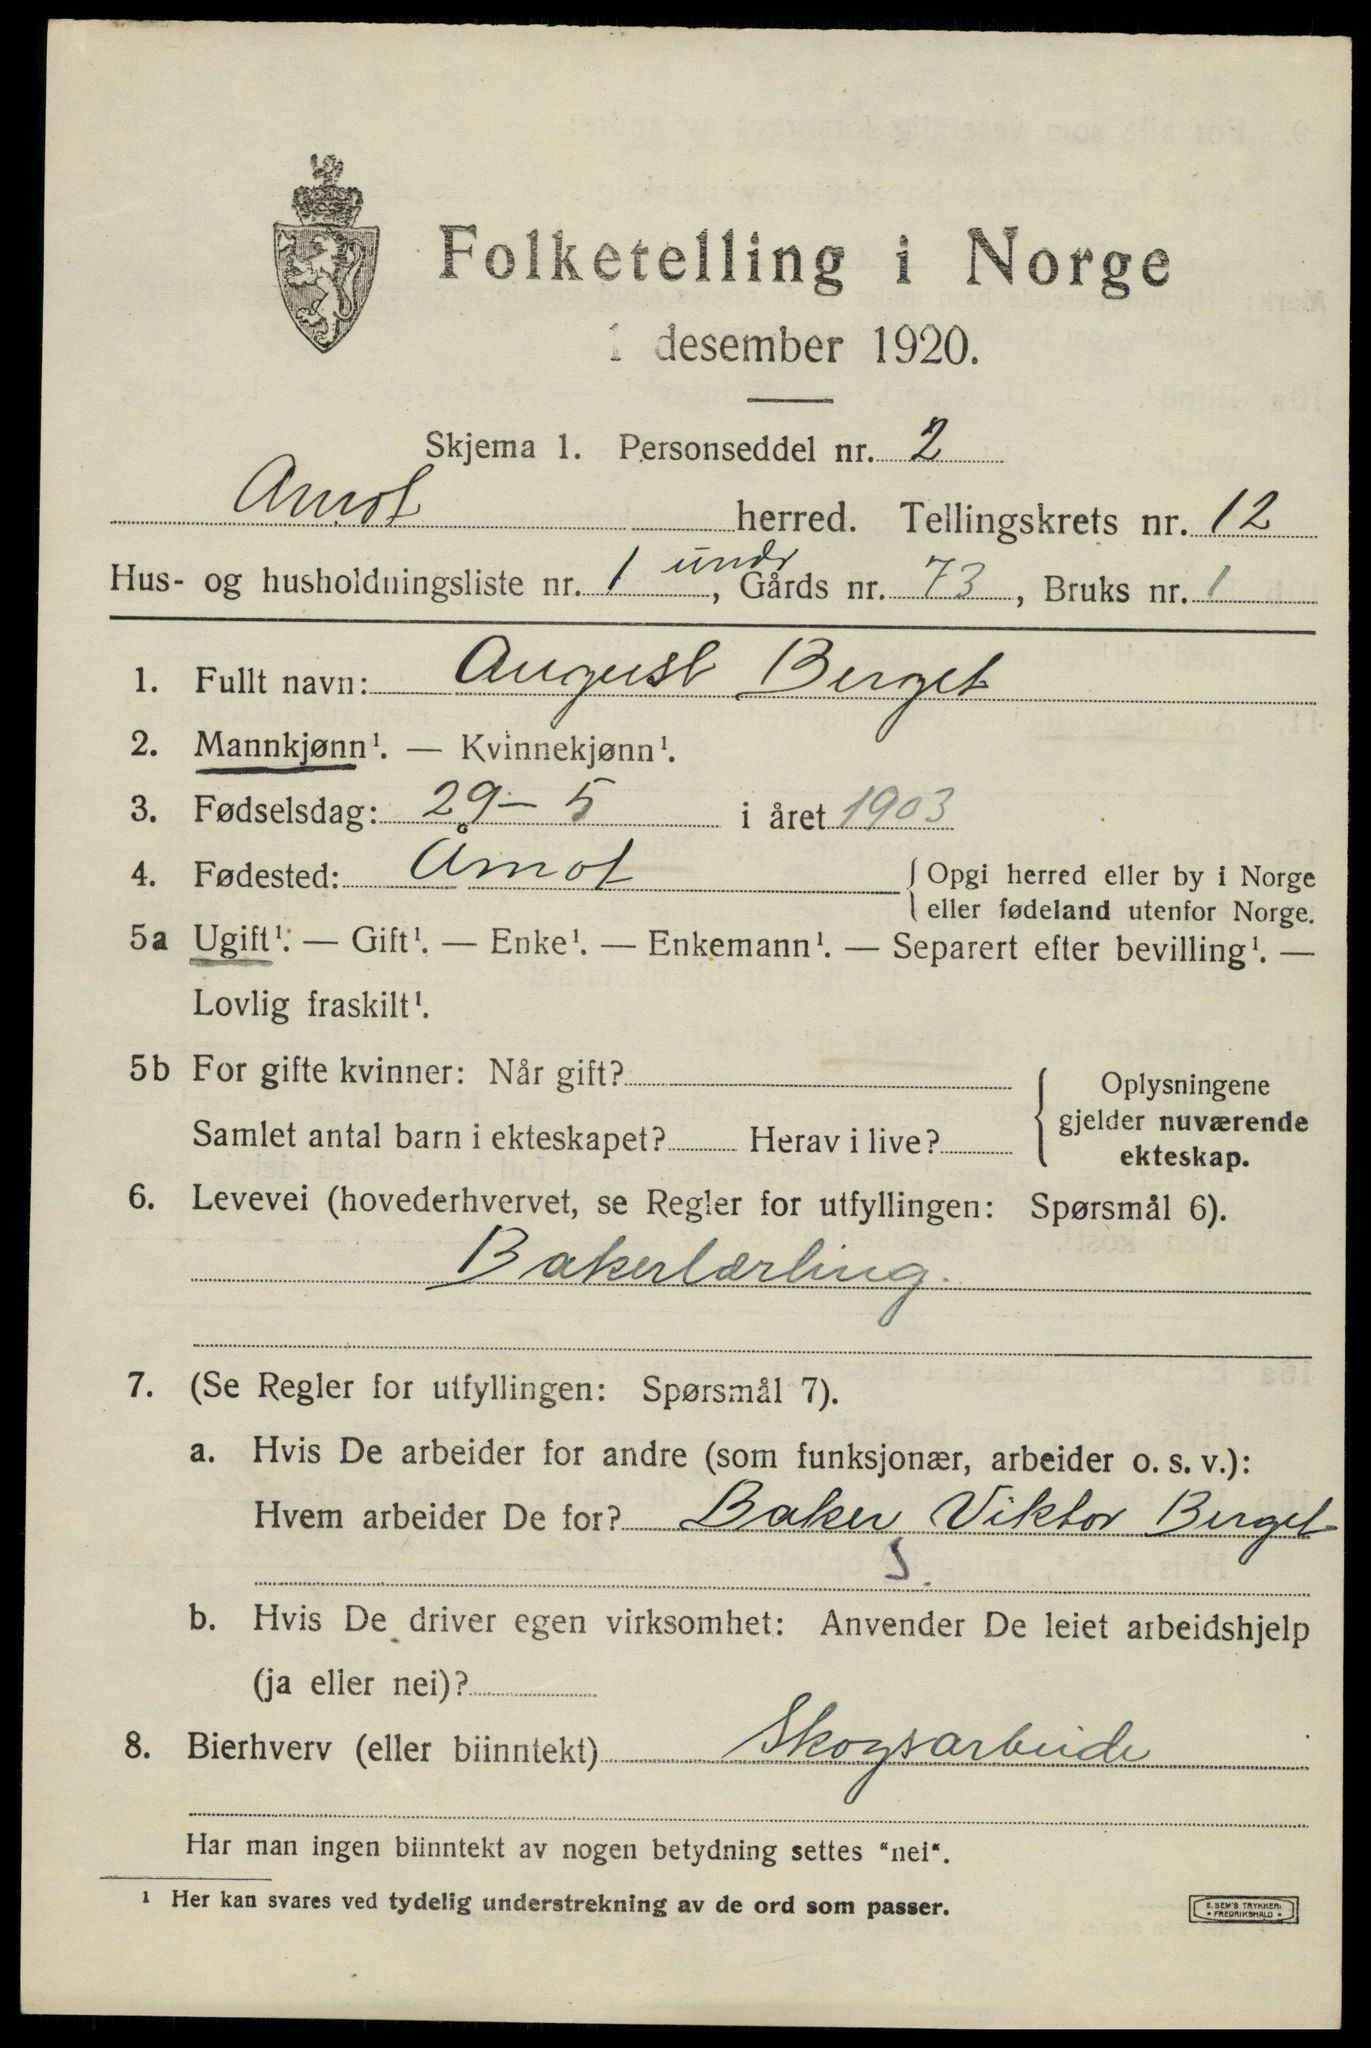 Folketelling i Norge
1 desember 1920.
Skjema 1. Personseddel nr. 2
Åmot herred. Tellingskrets nr. 12
Hus- og husholdningsliste nr. 1 undr, Gårds nr. 73, Bruks nr. 1
1. Fullt navn: August Berget
2. Mannkjønn¹. — Kvinnekjønn¹.
3. Fødselsdag: 29 – 5 i året 1903
4. Fødested: Åmot { Opgi herred eller by i Norge
eller fødeland utenfor Norge.
5a Ugift¹. — Gift¹. — Enke¹. — Enkemann¹. — Separert efter bevilling¹. —
Lovlig fraskilt¹.
5b For gifte kvinner: Når gift?
Samlet antal barn i ekteskapet? Herav i live?
{ Oplysningene
gjelder nuværende
ekteskap.
6. Levevei (hovederhvervet, se Regler for utfyllingen: Spørsmål 6).
Bakerlærling.
7. (Se Regler for utfyllingen: Spørsmål 7).
a. Hvis De arbeider for andre (som funksjonær, arbeider o. s. v.):
Hvem arbeider De for? Baker Viktor Berget
b. Hvis De driver egen virksomhet: Anvender De leiet arbeidshjelp
(ja eller nei)?
8. Bierhverv (eller biinntekt) Skogsarbeide
Har man ingen biinntekt av nogen betydning settes "nei".
¹ Her kan svares ved tydelig understrekning av de ord som passer.
E. SEM'S TRYKKERI
* FREDRIKSHALD *